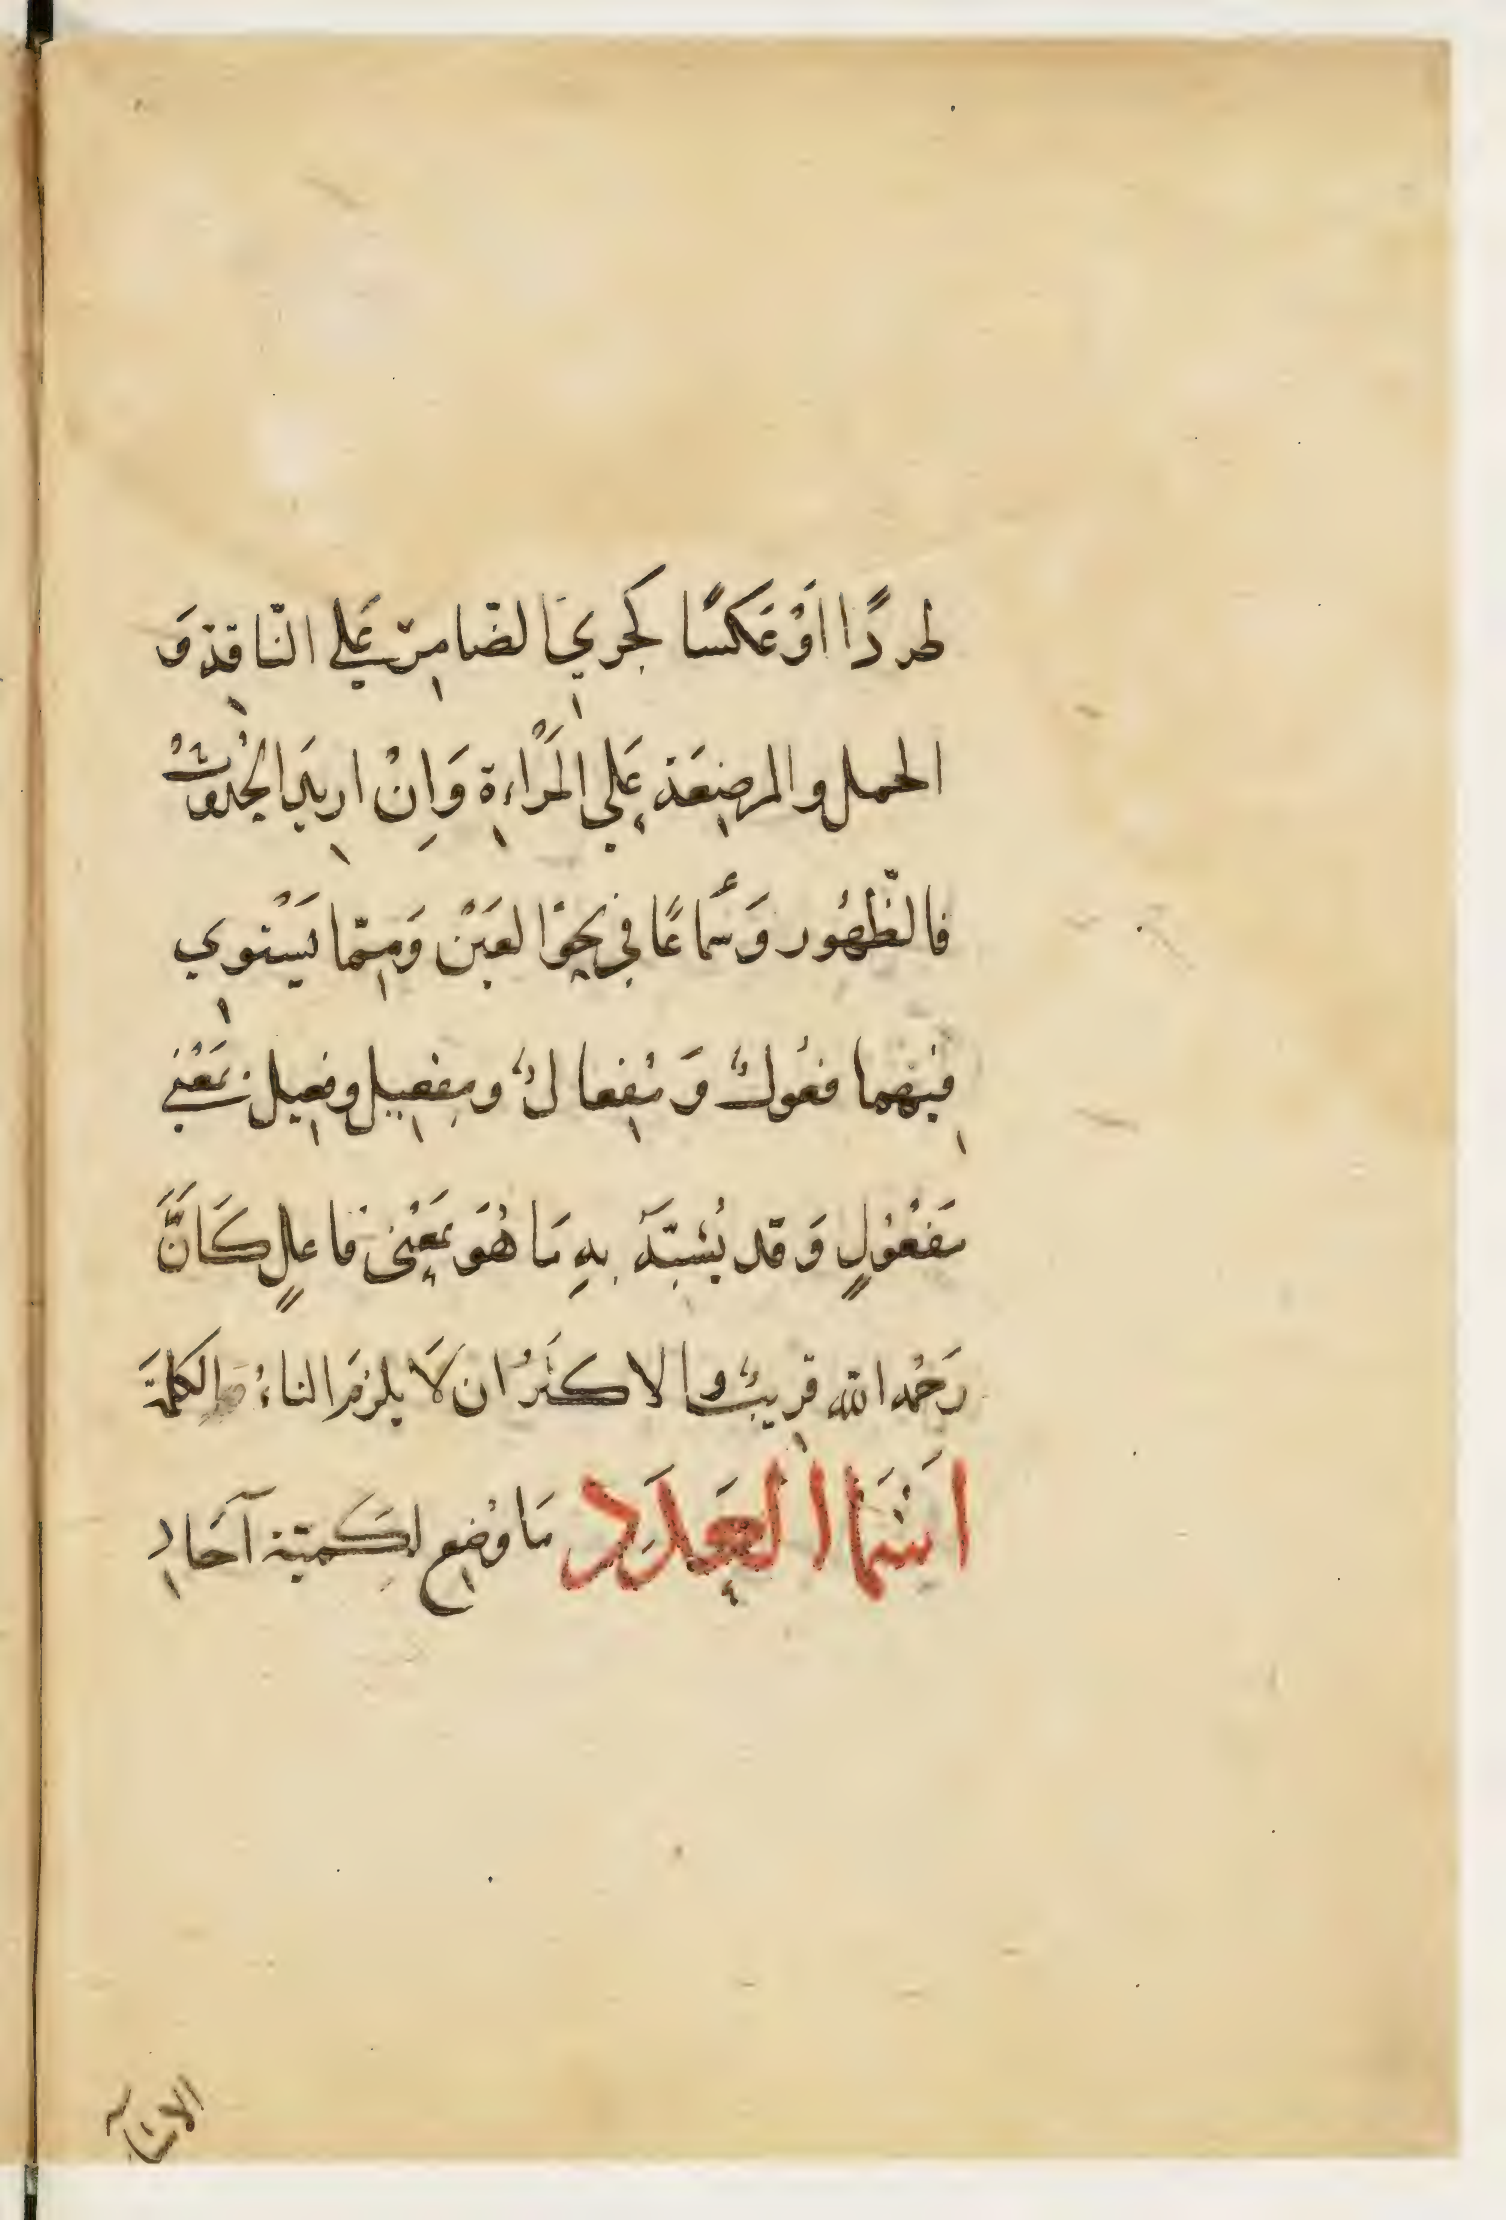 طردًا اَوْ عَكسًا كجريَ الضّامِرِ عَلي النّاقةِ وَ
الحمل والمرضِعَة عَلي المَرْاءةِ وَاِنْ اريدَ الحُدُوثُ
فالظّهُور وَسَمَاعًا فِي نحِوْ العَيْن وَمِمّا يَسْتوِي
فيهِما فعُولٌ وَ مِفعالٌ ومِفعِيل وفعِيل بمَعْني
مَفعُولٍ وَقد يُشبّهُ بهِ مَا هُوَ بمَعْنى فاعلٍ كَانَّ
رَحْمهَ الله قرِيبٌ والاكثرُ ان لَا يلزمَ التاءُ الكلمَةَ
اَسْمَا العَدَدِ مَا وُضِع لِكَميّة آحَادِ
الاشيآء